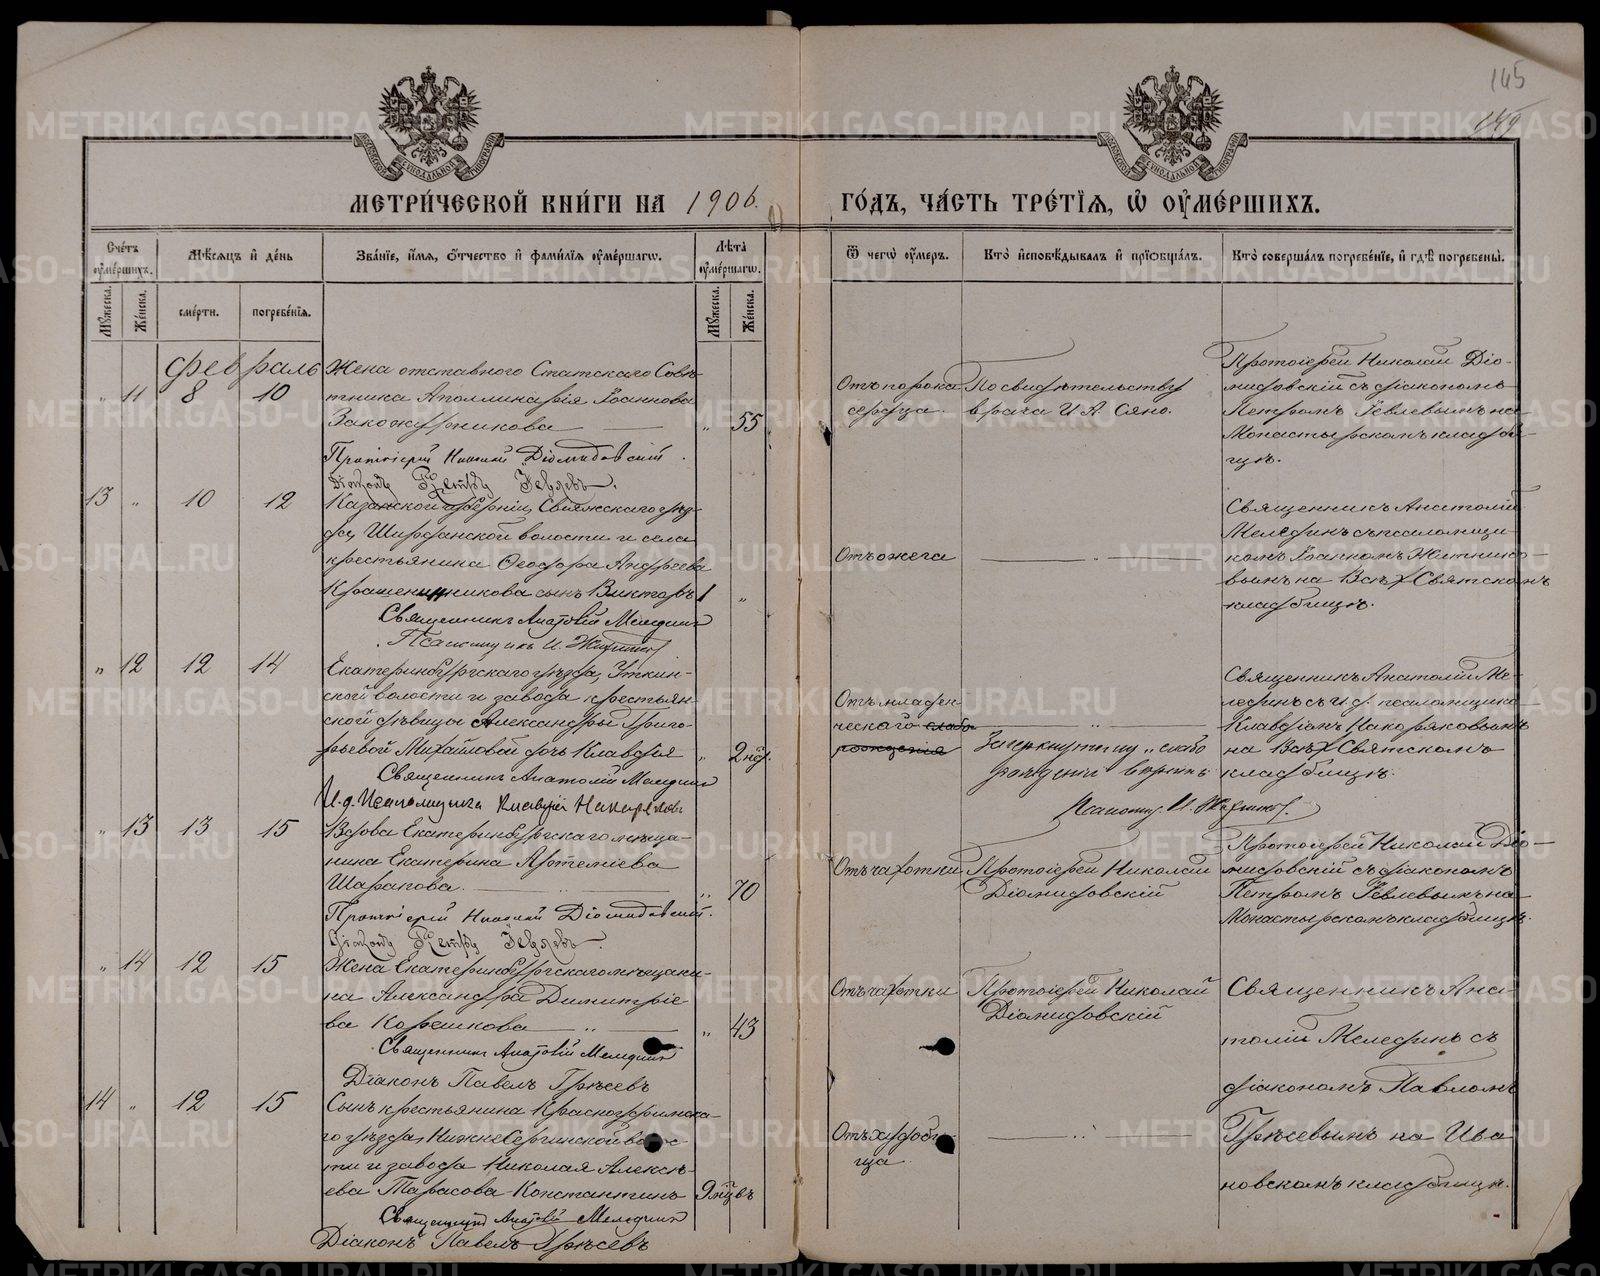 145
149
МЕТРИ́ЧЕСКОЙ КНИ́ГИ НА 1906.
ГО́ДЪ, ЧА́СТЬ ТРЕ́ТЇѦ, Ѡ҆ ОУ҆МЕ́РШИХЪ.
Сче́тъ оу҆ме́ршихъ.
Мѣ́сѧцъ и҆ де́нь
Зва́нїе, и҆́мѧ, ѻ҆́тчество и҆ фами́лїѧ оу҆ме́ршагѡ.
Лѣ́та оу҆ме́ршагѡ.
Ѿ чегѡ̀ оу҆́меръ.
Кто̀ и҆сповѣ́дывалъ и҆ прїѡбща́лъ.
Кто̀ соверша́лъ погребе́нїе, и҆ гдѣ̀ погребены̀.
Мꙋ́жеска.
Же́нска.
сме́рти.
погребе́нїѧ.
Мꙋ́жеска.
Же́нска.
февраль
" 11 8 10
Жена отставного Статскаго Совѣ-
тника Аполлинарія Іоаннова
Закожурникова " 55
Отъ порока
сердца.
По свидѣтельству
врача И. А. Сяно.
Протоіерей Николай Діо-
мидовскій съ діакономъ
Петромъ Іевлевымъ на
Монастырскомъ кладби-
щѣ.
Протоіерей Николай Діомидовскій.
Діаконъ Петръ Іевлевъ.
13 " 10 12
Казанской губерніи, Свіяжскаго уѣз-
да, Ширданской волости и села
крестьянина Ѳеодора Андреева
Крашенинникова сынъ Викторъ 1 "
Отъ ожега
"
Священникъ Анатолій
Меледінъ съ псаломщи-
комъ Іоанномъ Житнико-
вымъ на Всѣхъ Святскомъ
кладбищѣ.
Священникъ Анатолій Меледин
Псаломщикъ И. Житников
" 12 12 14
Екатеринбургскаго уѣзда, Уткин-
ской волости и завода крестьян-
ской дѣвицы Александры Григо-
рьевой Михайловой дочь Клавдія " 2 нед.
Отъ младен-
ческаго слабо-
рожденія
"
Зачеркнутому "слабо
рожденія вѣрить
Псаломщ. И. Житников.
Священникъ Анатолій Ме-
лединъ съ И. д. псаломщика
Клавдіемъ Накоряковымъ
на Всѣхъ Святскомъ
кладбищѣ.
Священникъ Анатолій Меледин
И. д. Псаломщика Клавдій Накоряковъ
" 13 13 15
Вдова Екатеринбургскаго мѣща-
нина Екатерина Артеміева
Шарапова. " 70
Отъ чахотки
Протоіерей Николай
Діомидовскій
Протоіерей Николай Діо-
мидовскій съ діакономъ
Петромъ Іевлевымъ на
Монастырскомъ кладбищѣ.
Протоіерей Николай Діомидовскій.
Діаконъ Петръ Іевлевъ.
" 14 12 15
Жена Екатеринбургскаго мѣщани-
на Александра Димитріе
ва Корешкова " 43
Отъ чахотки
Протоіерей Николай
Діомидовскій
Священникъ Ана-
толій Меледінъ съ
діакономъ Павломъ
Грѣсевымъ на Ива
новскомъ кладбищѣ.
Священникъ Анатолій Меледин
Діаконъ Павелъ Грѣсевъ
14 " 12 15
Сынъ крестьянина Красноуфимска-
го уѣзда, НижнеСергинской волос-
ти и завода Николая Алексѣ-
ева Тарасова Константинъ 9 мѣцвъ
Отъ худоби-
ща.
"
Священникъ Анатолій Меледин
Діаконъ Павелъ Грѣсевъ